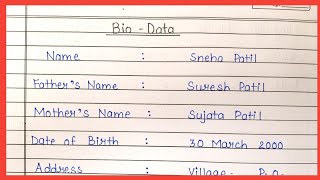 Bio - Data
Name : Sneha Patil
Father's Name : Suresh Patil
Mother's Name : Sujata Patil
Date of Birth : 30 March 2000
Address : Village - P.O.